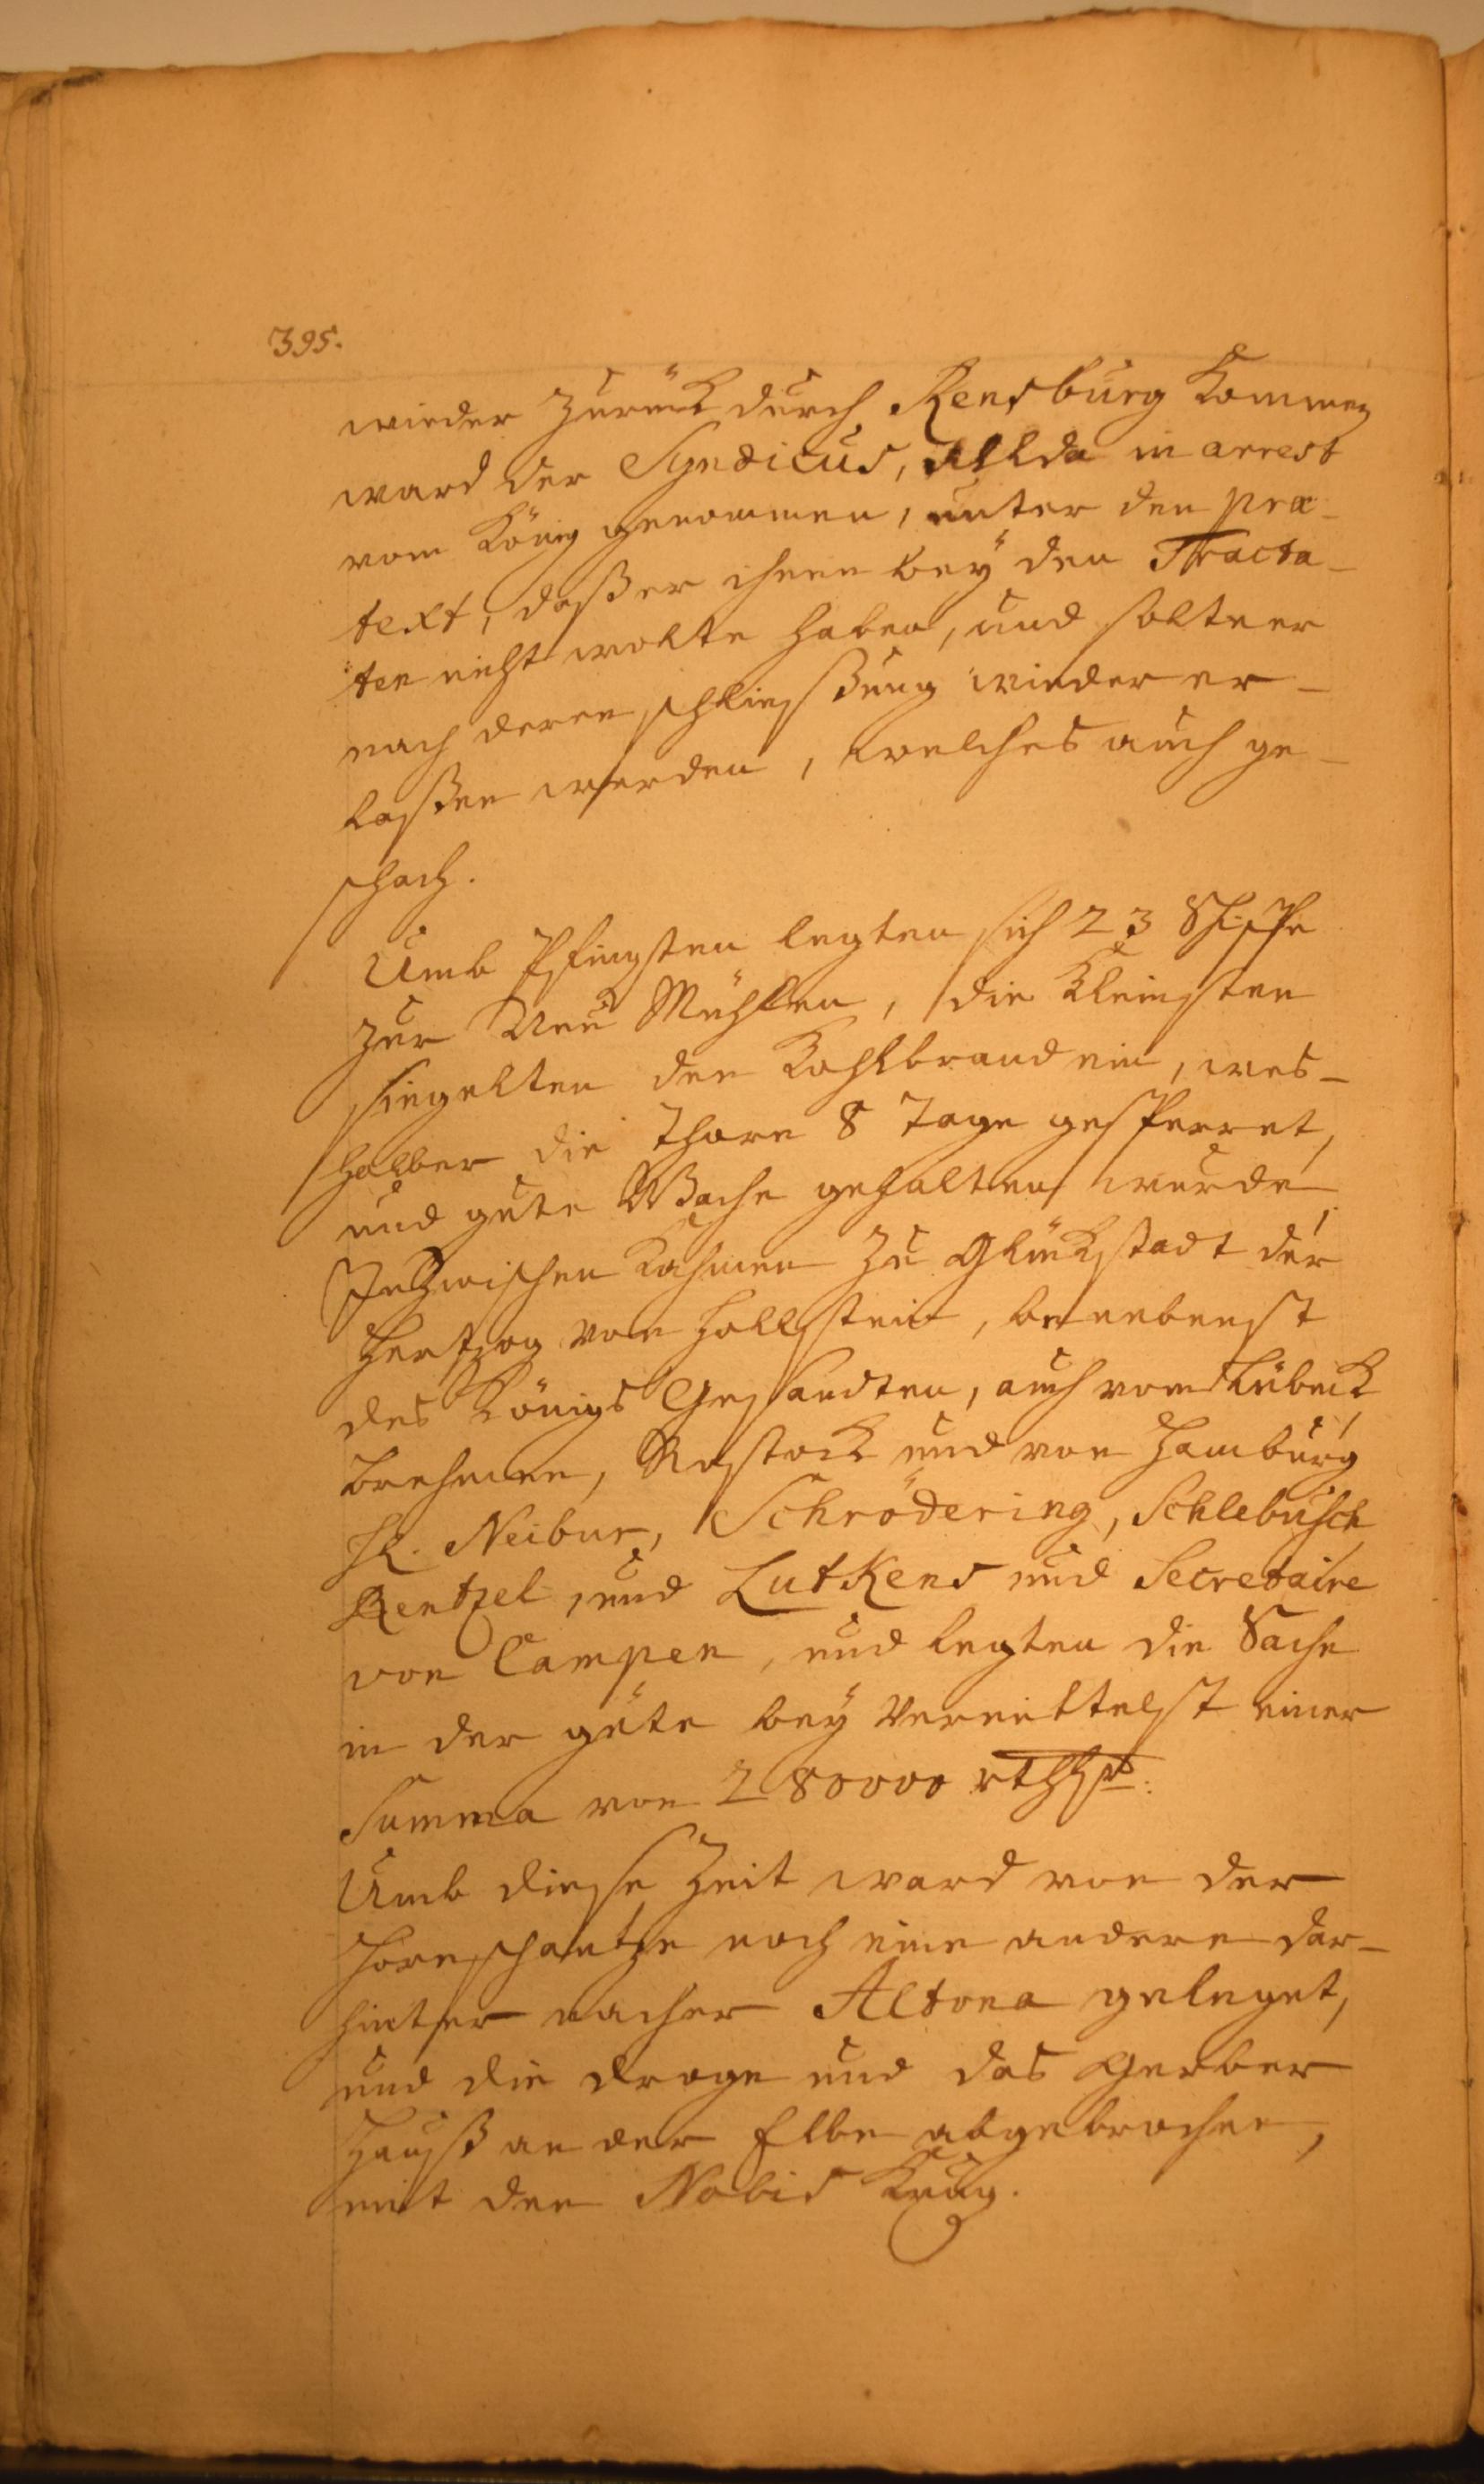 395.
wieder zurück durch Rensburg Kommen
ward der Syndicus, allda in arrest
vom König genommen, unter den præ-
text, daß er ihnen bey den Tracta-
ten nicht wolte haben, und solte er
nach deren schließung wieder er-
laßen werden, welches auch ge-
schach.
Umb Pfingsten legten sich 23 Schiffe
zur Neu Mühlen, die Kleinsten
siegelten den Kohlbrand ein, wes-
halber die Thore 8 Tage gesperret,
und gute Wache gehalten wurde,
Inzwischen Kahmen zu Glückstadt der
Hertzog von Hollstein, benebenst
des Königs Gesandten, auch vom Lübeck
Brehmen, Rostock und von Hamburg
H. Neibur, Schrödering, Schlebusch
Rentzel, und Lutkens und Secretaire
von Campen, und legten die Sache
in der güte bey vermittelst einer
Summa von 280000 rthlr.
Umb diese Zeit ward von der
Hornschantze noch eine andere dar-
hinter nacher Altona geleget,
und die Droge und das Gerber
Hauß an der Elbe abgebrochen,
mit den Nobis Krug.